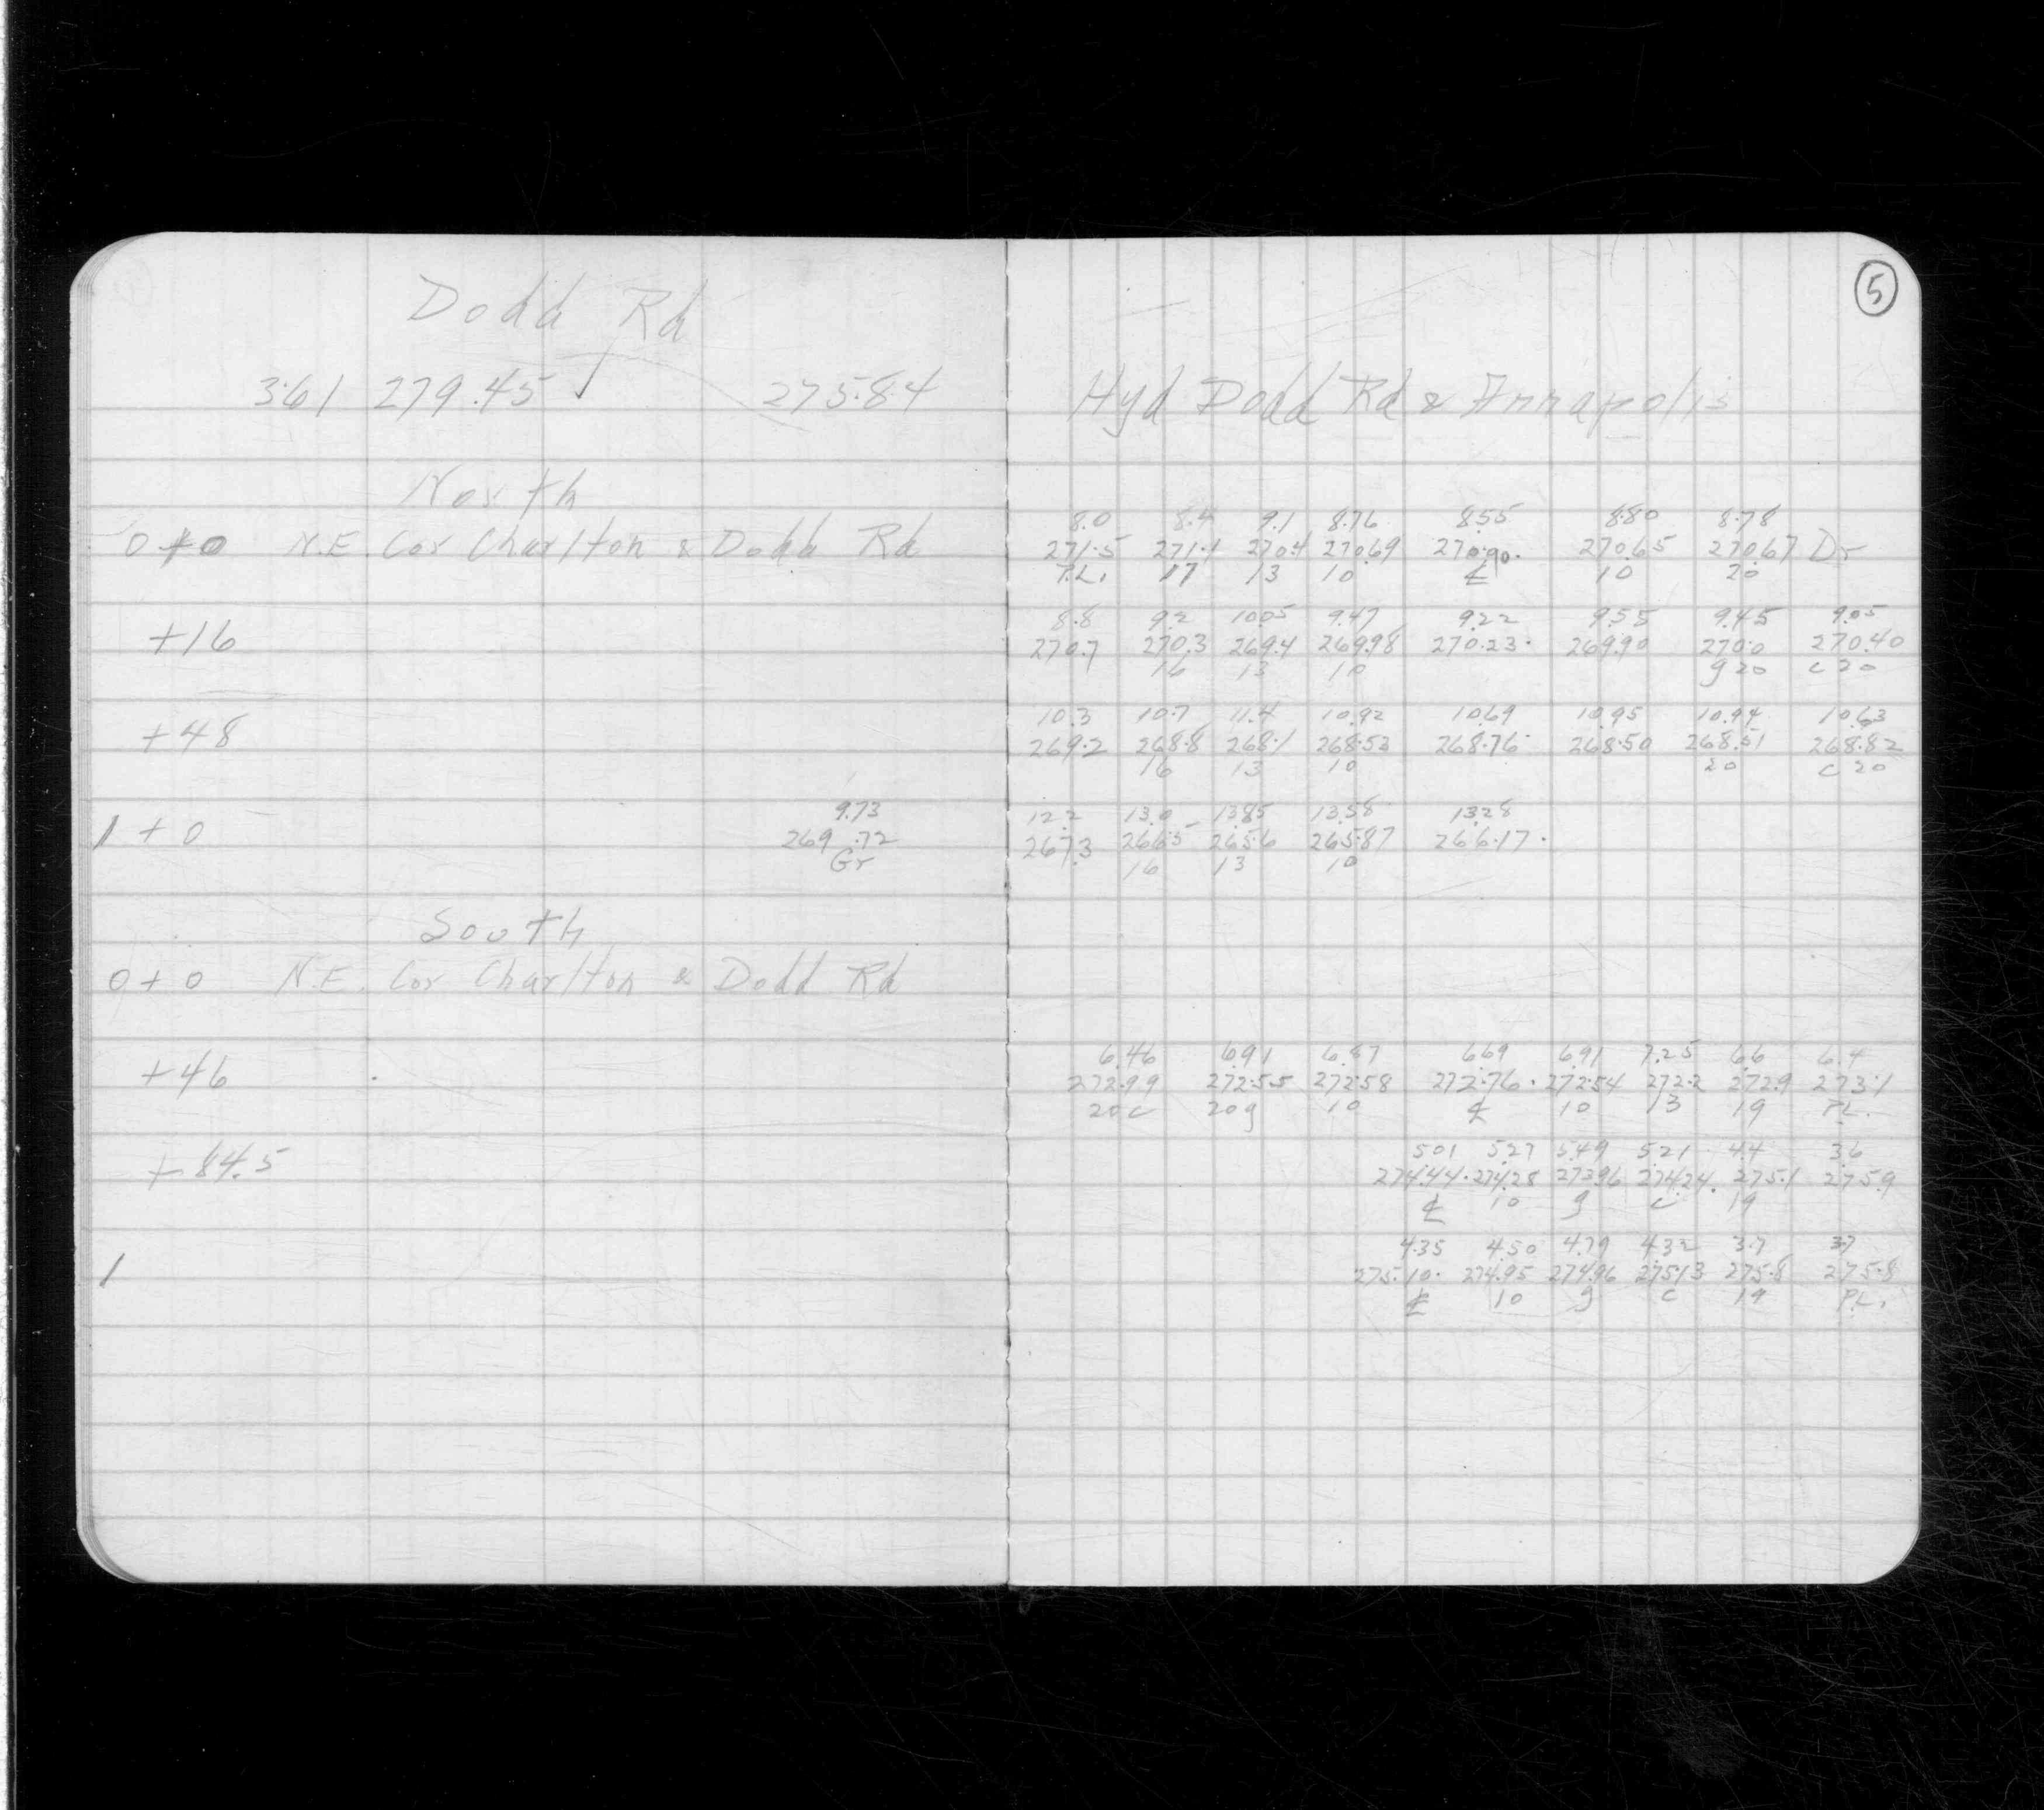 5
Dodd Rd
3.61 279.45 275.84 Hyd Dodd Rd & Annapolis
North
8.0 8.4 9.1 8.76 8.55 8.80 8.78
0+0 N.E. Cor Charlton & Dodd Rd 271.5 271.1 270.4 270.69 270.90. 270.65 270.67 Dr
P.L. 17 13 10 ℄ 10 20
8.8 9.2 10.05 9.47 9.22 9.55 9.45 9.05
+16 270.7 270.3 269.4 269.98 270.23. 269.90 270.0 270.40
16 13 10 g 20 c 20
10.3 10.7 11.4 10.92 10.69 10.95 10.94 10.63
+48 269.2 268.8 268.1 268.53 268.76 268.50 268.51 268.82
16 13 10 20 c 20
9.73 12.2 13.0 13.85 13.58 13.28
1+0 269.72 267.3 266.5 265.6 265.87 266.17.
Gr 16 13 10
South
0+0 N.E. Cor Charlton & Dodd Rd
6.46 6.91 6.87 6.69 6.91 7.25 6.6 6.4
+46 272.99 272.55 272.58 272.76. 272.54 272.2 272.9 273.1
20 c 20 g 10 ℄ 10 13 19 P.L.
5.01 5.27 5.49 5.21 4.4 3.6
+84.5 274.44. 274.28 273.96 274.24. 275.1 275.9
℄ 10 g c 19
4.35 4.50 4.79 4.32 3.7 3.7
1 275.10. 274.95 274.96 275.13 275.8 275.8
℄ 10 g c 19 P.L.